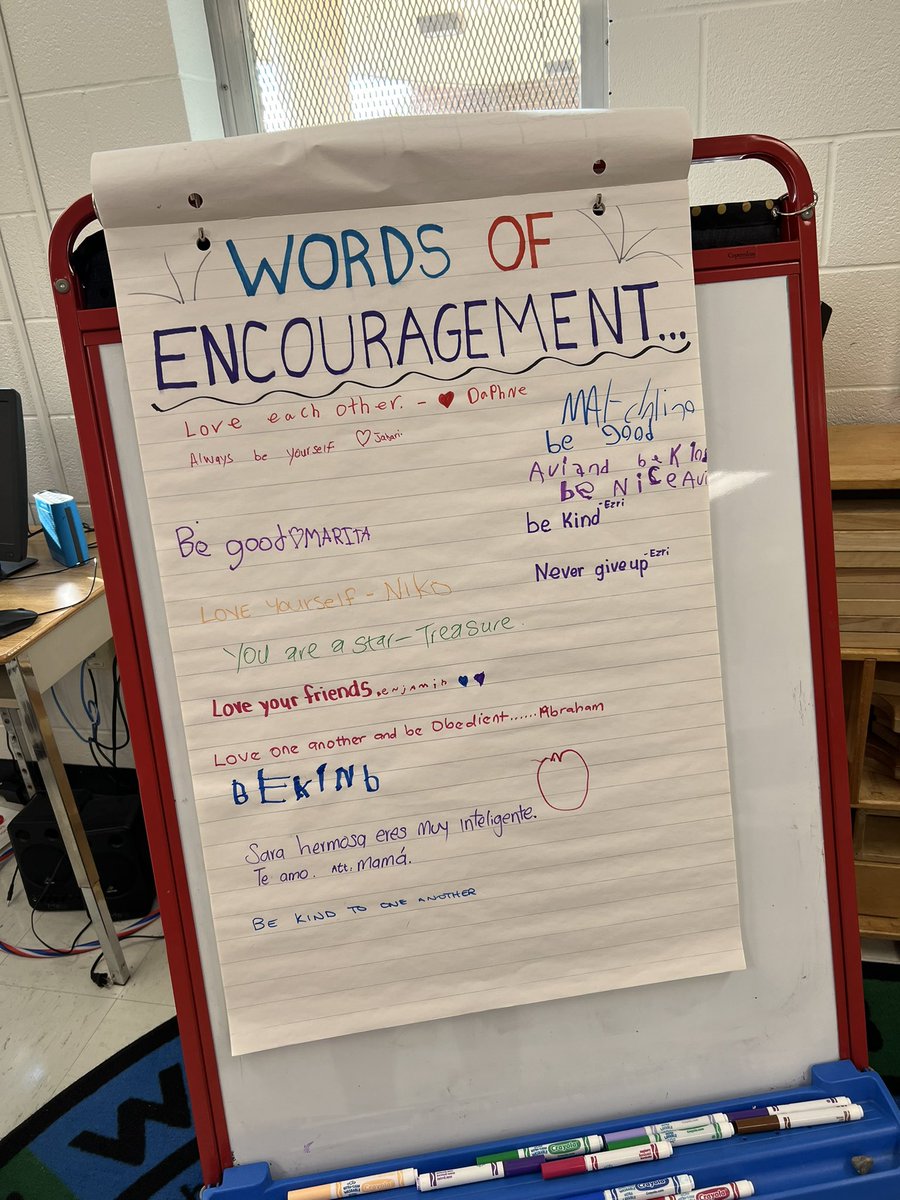 WORDS OF
ENCOURAGEMENT...
Love each other. - DaPhNe
Always be yourself Jabari
be good
Avi and be Kind
be NiCe Avi
Be good MARITA
be Kind -Ezri
Never give up -Ezri
LOVE Yourself - NIKO
YOU are a Star - Treasure.
Love your friends. enjamin
Love one another and be Obedient......Abraham
BEKINb
Sara hermosa eres muy inteligente.
Te amo. Att. Mamá.
BE KIND TO ONE ANOTHER
Crayola
Crayola
Crayola